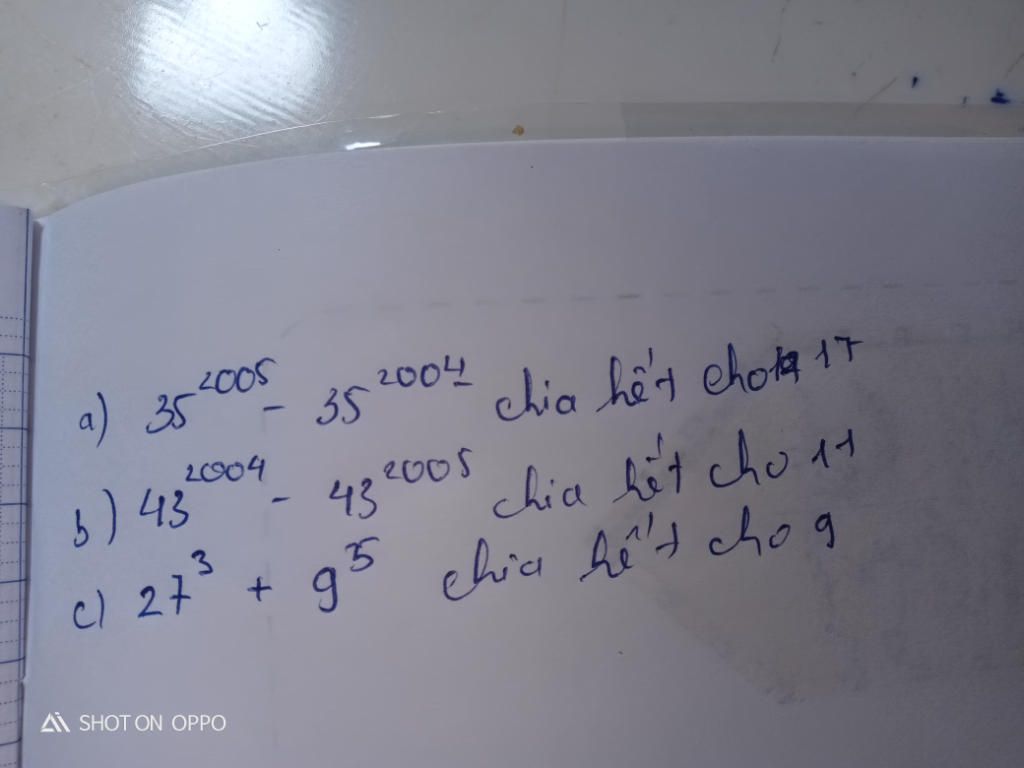 a) 35^2005 - 35^2004 chia hết cho 17
b) 43^2004 - 43^2005 chia hết cho 11
c) 27^3 + 9^5 chia hết cho 9
SHOT ON OPPO